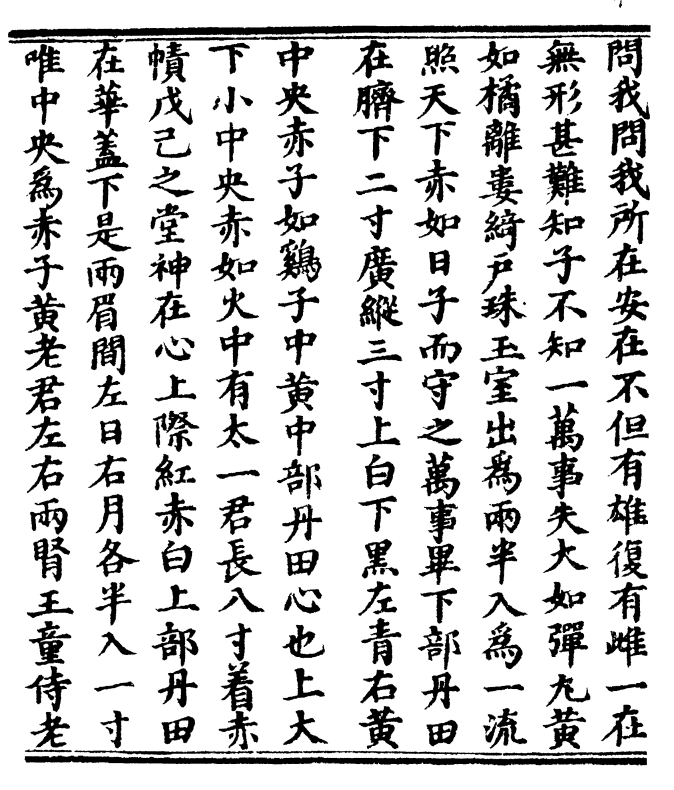 問我問我所在安在不但有雄復有雌一在
無形甚難知子不知一萬事失大如彈丸黃
如橘離婁綺戶珠玉室出爲兩半入爲一流
照天下赤如日子而守之萬事畢下部丹田
在臍下二寸廣縱三寸上白下黑左青右黃
中央赤子如鷄子中黃中部丹田心也上大
下小中央赤如火中有太一君長八寸着赤
幘戊己之堂神在心上際紅赤白上部丹田
在華蓋下是兩眉間左日右月各半入一寸
唯中央爲赤子黃老君左右兩腎王童侍老